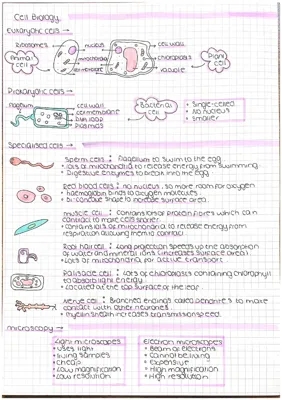 Cell Biology
eukaryotic cells →
ribosomes
nucleus
cell wall
Animal cell
mitochondria
chloroplasts
Plant cell
membrane
vacuole
Prokaryotic cells →
flagellum
cell wall
cell membrane
plasmids
Bacterial cell
• single-celled
• No nucleus
• smaller
Specialised cells →
sperm cells: flagellum to swim to the egg
• lots of mitochondria to release energy from swimming
• Digestive enzymes to break into the egg
Red blood cells: no nucleus, so more room for oxygen
• haemoglobin binds to oxygen molecules
• Bi-concave shape to increase surface area
muscle cell: contains lots of protein fibres which can
contract to make cell shorter
• contains lots of mitochondria to release energy from
respiration allowing them to contract
Root hair cell: Long projection speeds up the absorption
of water and mineral ions (increases surface area)
• lots of mitochondria for active transport
Palisade cell: lots of chloroplasts containing chlorophyll
to absorb light energy
• Located at the top surface of the leaf
Nerve cell: Branched endings called dendrites to make
contact with other neurones
• myelin sheath increases transmission speed
microscopy →
Light microscopes
• uses light
• living samples
• cheap
• Low magnification
• Low resolution
Electron microscopes
• Beam of electrons
• Cannot be living
• Expensive
• High magnification
• High resolution